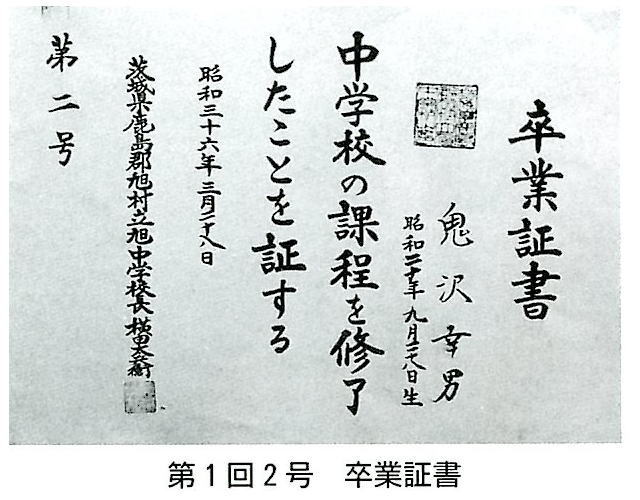 卒業証書
鬼沢幸男
昭和二十年九月二八日生
中学校の課程を修了
したことを証する
昭和三十六年三月二十八日
茨城県鹿島郡旭村立旭中学校長 横田
第二号
第1回2号　卒業証書